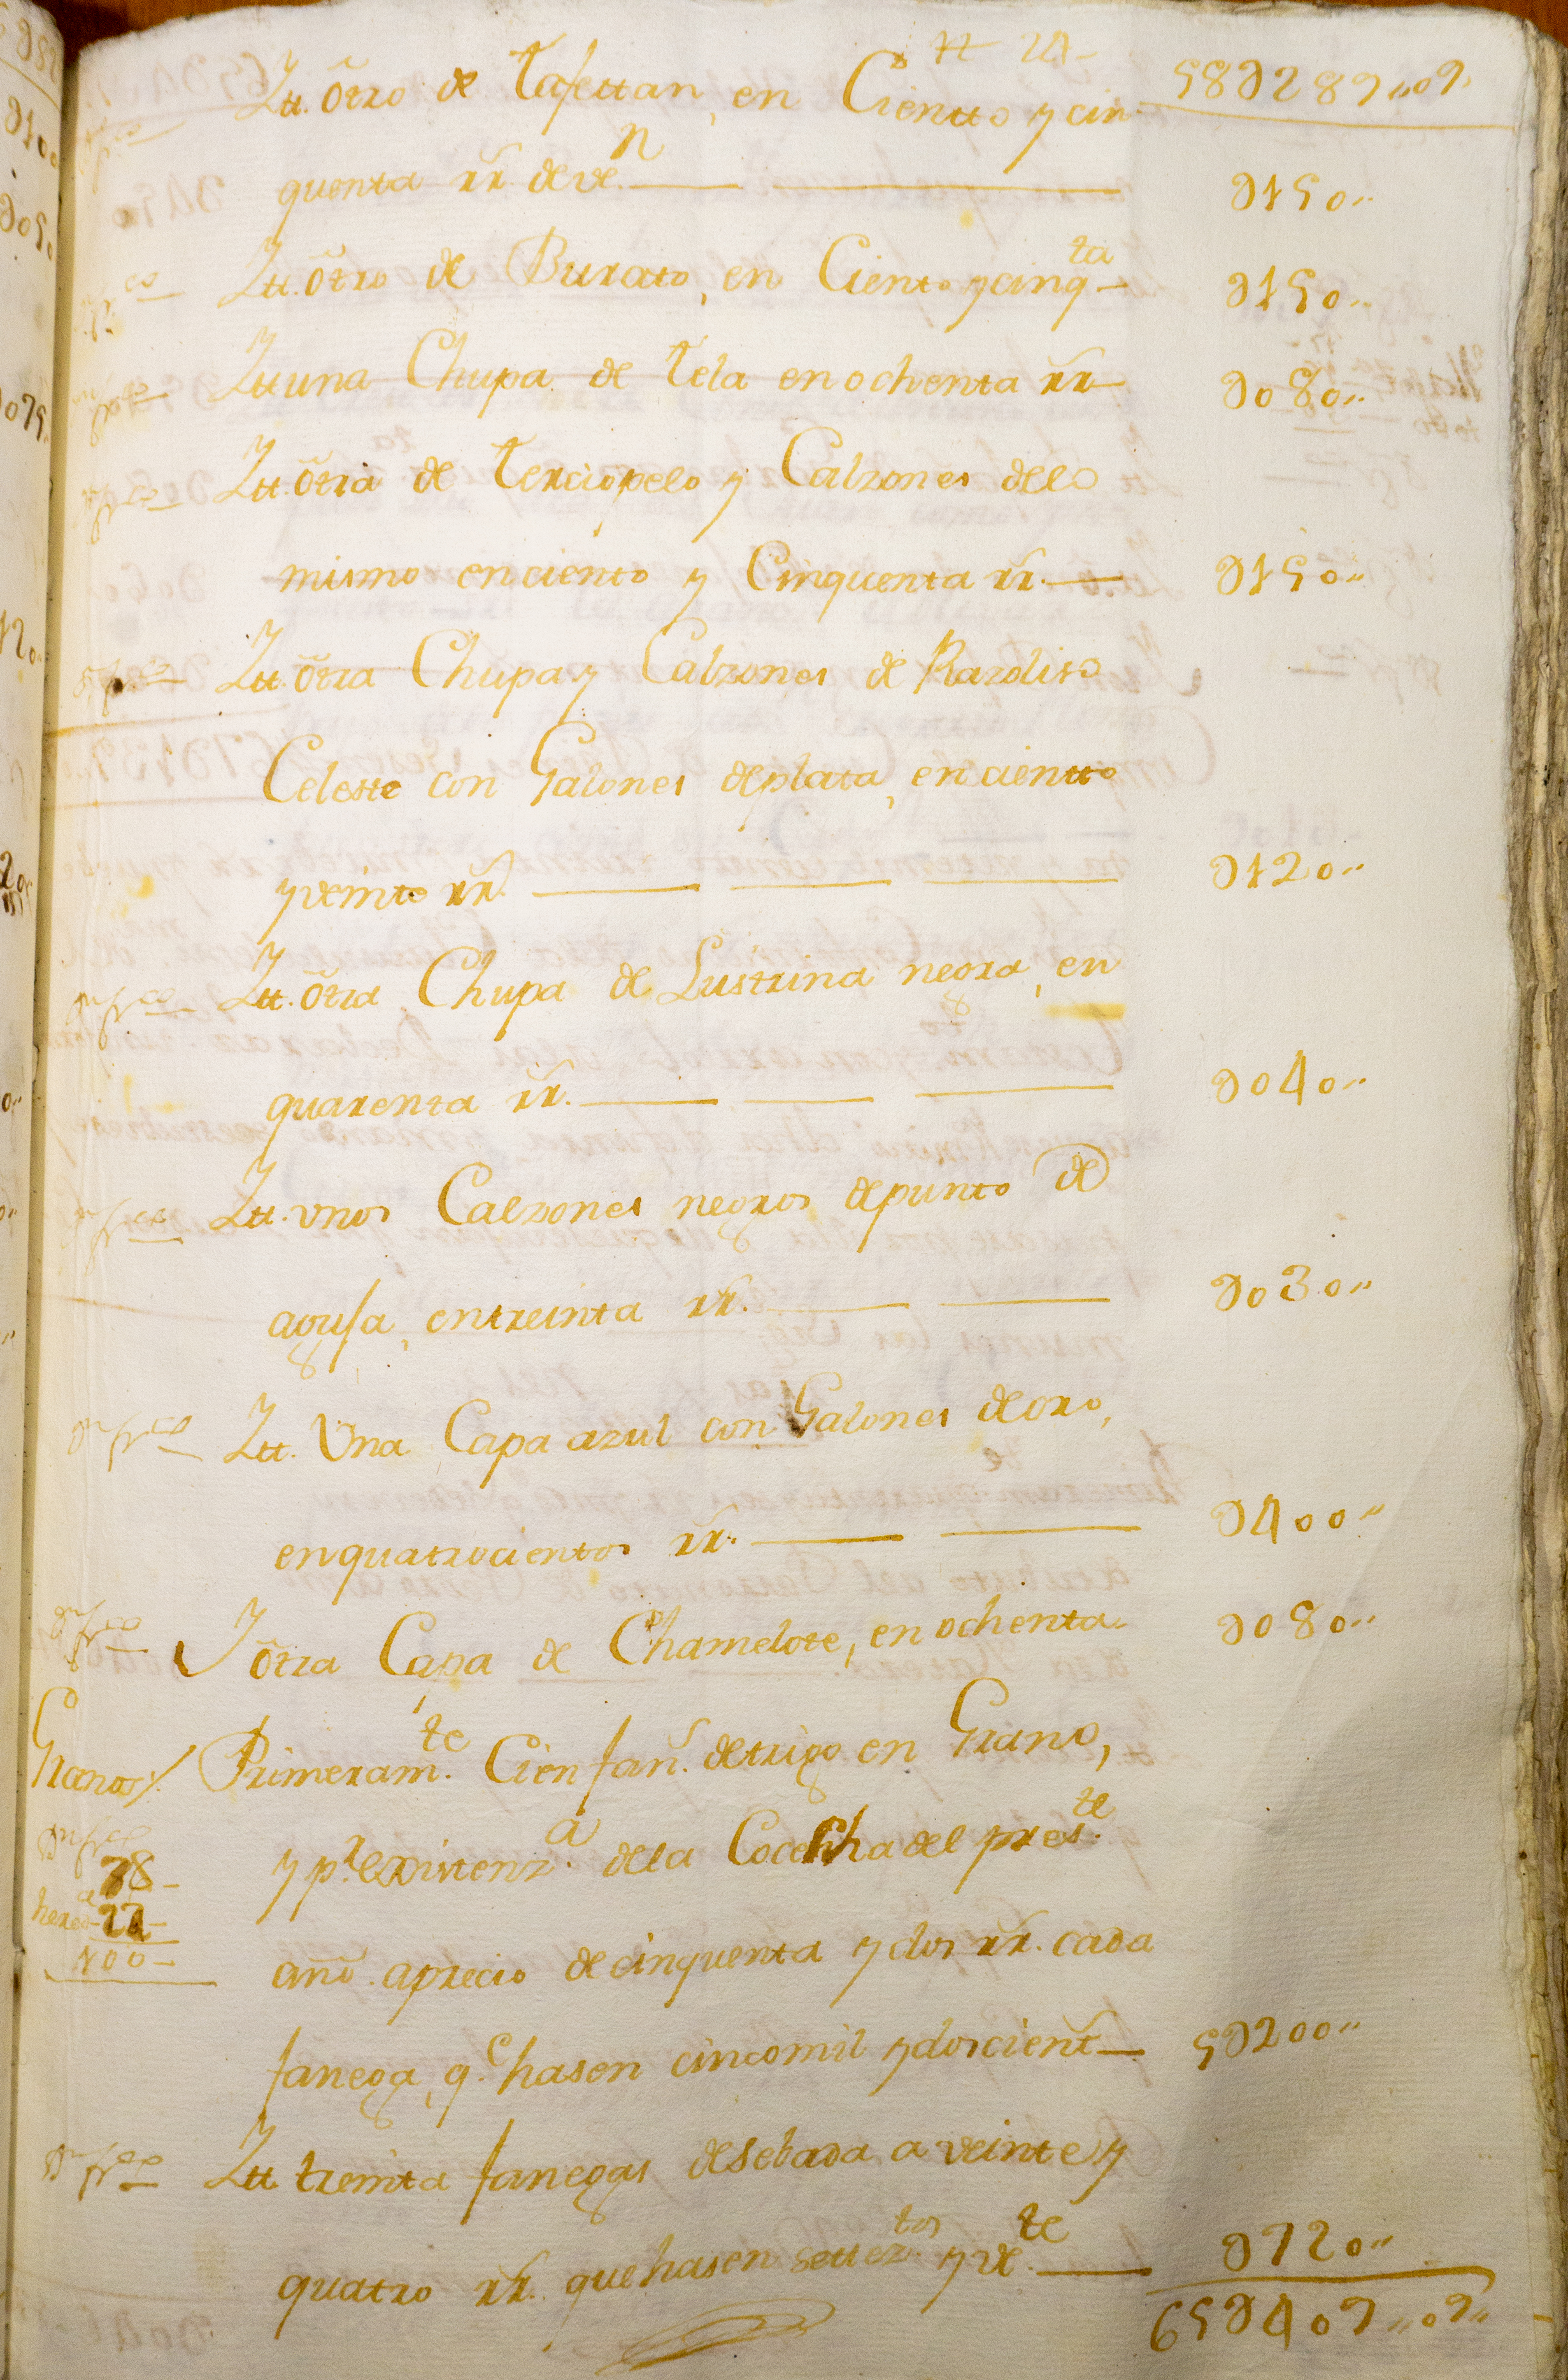 Ytt. õtro de tafettan, en Cientto y cin
58U289,,09,,
quenta rr̃ de ve.n
U150,,
Ytt. õtro de Burato, en Ciento y cinq.ta
U150,,
Ytt una Chupa de tela en ochenta rr̃
U080,,
Ytt. õtra de terciopelo y Calzones dello
mismo en ciento y Cinquenta rr̃.
U150,,
Ytt. õtra Chupa y Calzones de Razoliso
Celeste con Galones de plata, en cientto
y veinte rr̃.
U120,,
Ytt. õtra Chupa de Lustrina negra, en
quarenta rr̃.
U040,,
Ytt. vnos Calzones negros de punto de
aguja, en treinta rr̃.
U030,,
Ytt. Vna Capa azul con Galones de oro,
en quatrocientos rr̃.
U400,,
Y õtra Capa de Chamelote, en ochenta
U080,,
Granos/. Primeram.te Cien fan.s de trigo en Grano,
y p.r existenz.a de la Cocecha del pres.te
78
hered.a 22
100
añõ. a precio de cinquenta y dos rr̃. cada
fanega, q.e hasen cinco mil y dos cient
5U200,,
Ytt. treinta fanegas de sebada a veinte y
quatro rr̃. que hasen settez.tos y ve.te
U720,,
65U409,,09,,